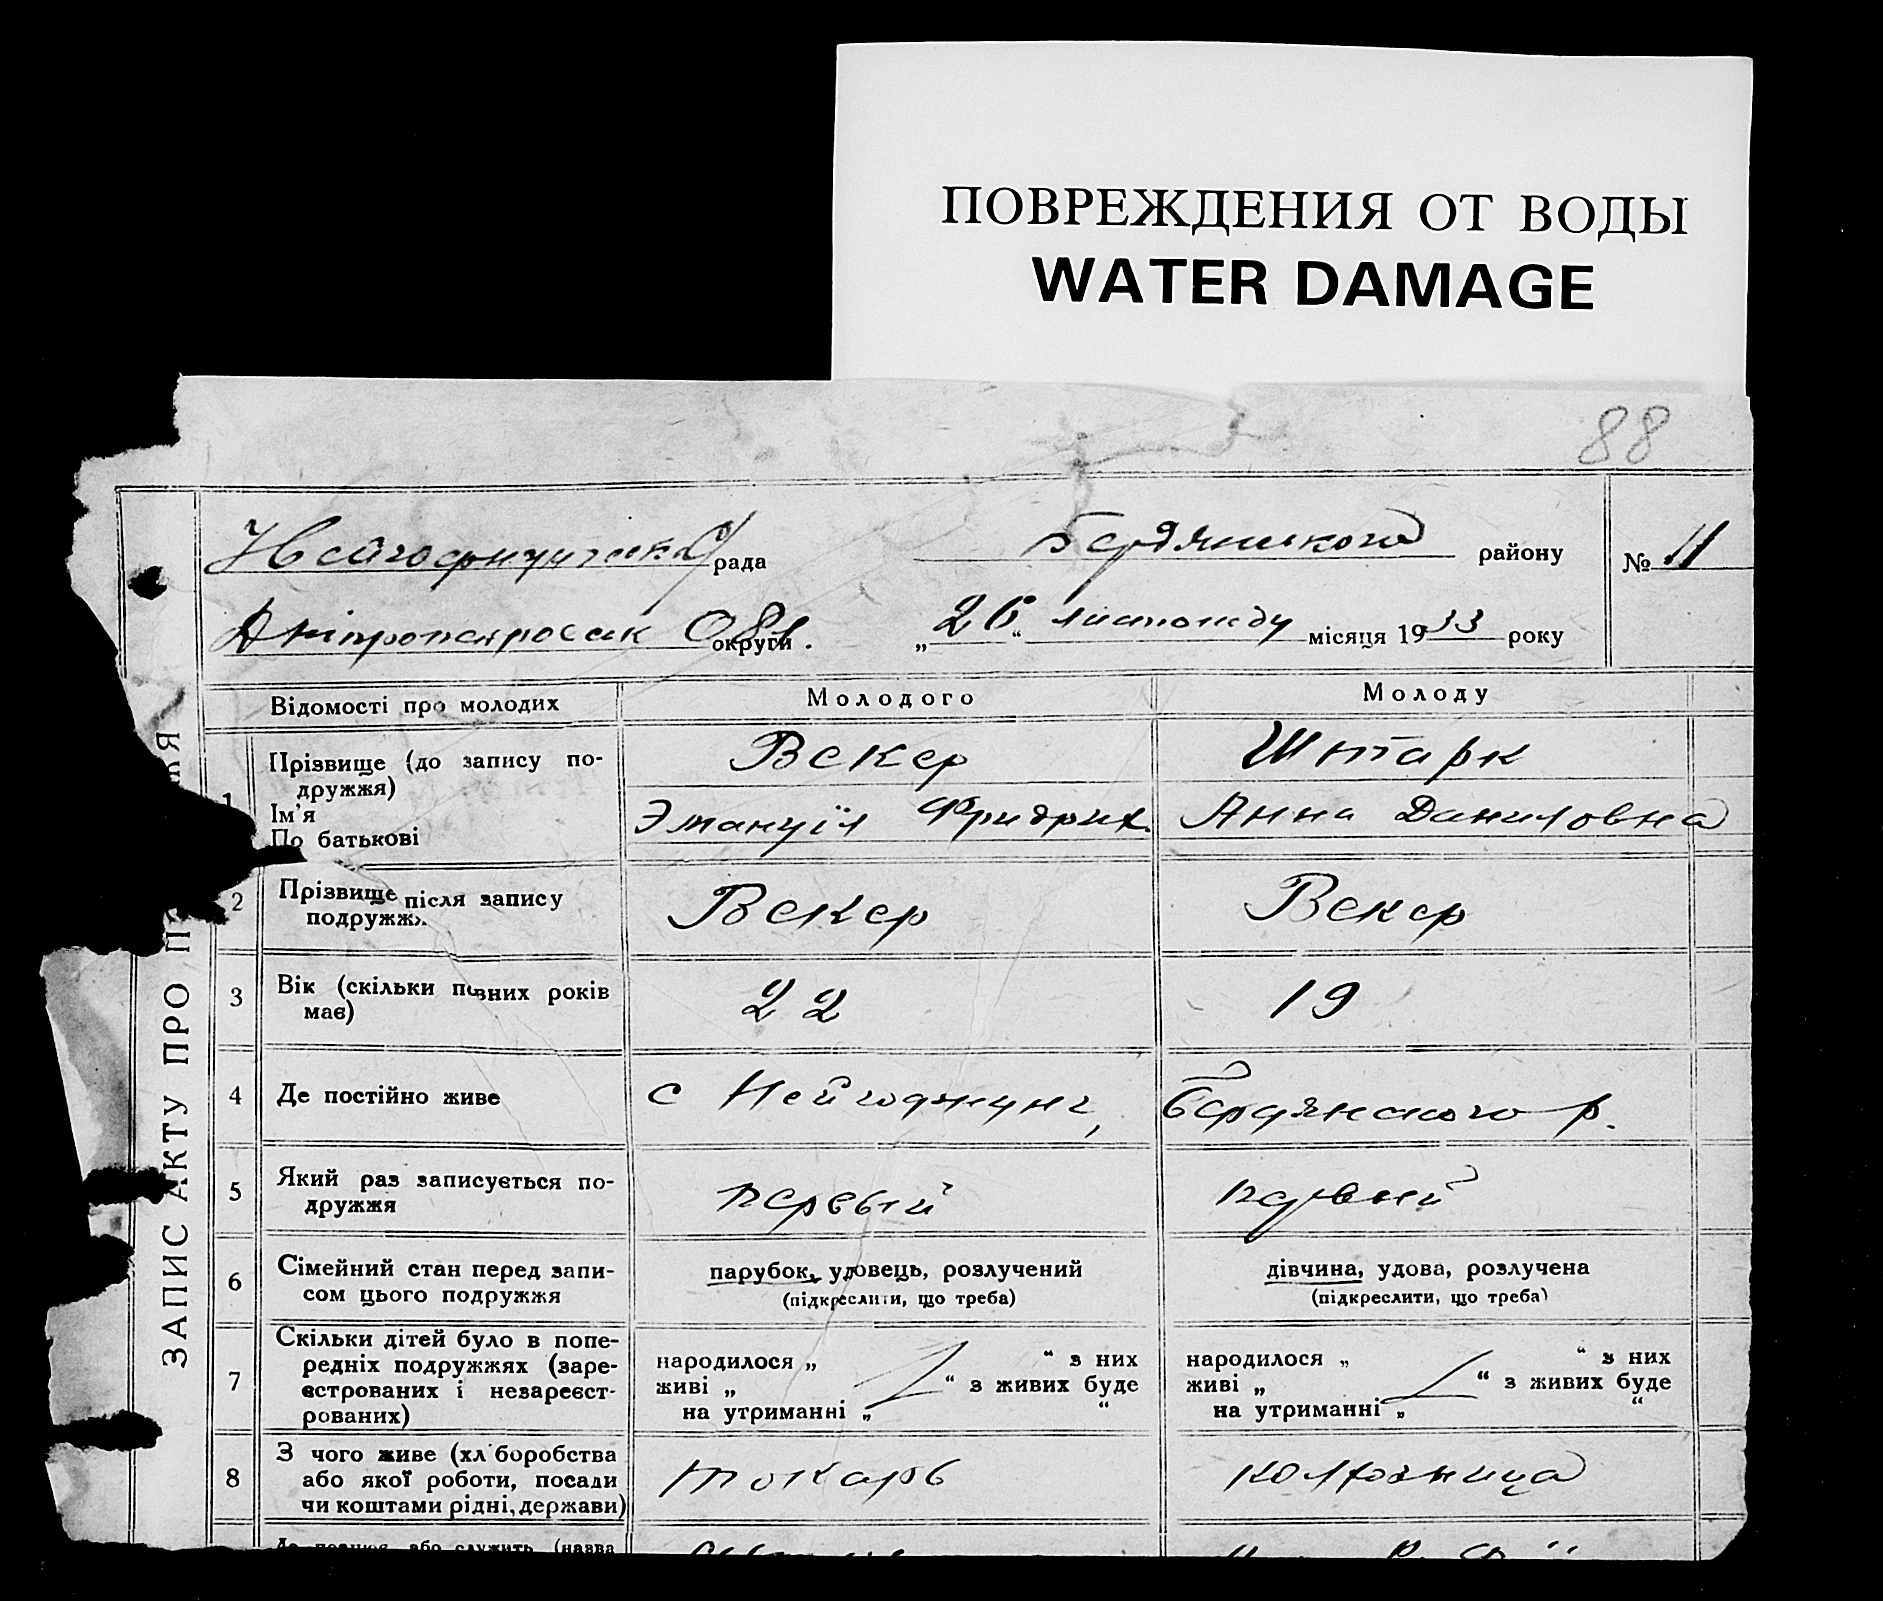 ПОВРЕЖДЕНИЯ ОТ ВОДЫ
WATER DAMAGE
88
рада Бердянського району № 11
Дніпропетровськ Обл. округи . „26“ листопаду місяця 1933 року
ЗАПИС АКТУ ПРО П
Відомості про молодих Молодого Молоду
1 Прізвище (до запису по-
дружжя) Векер Штарк
Ім'я
По батькові Эмануїл Фридрих. Анна Даниловна
2 Прізвище після запису
подружжя Векер Векер
3 Вік (скільки повних років
має) 22 19
4 Де постійно живе с Бердянского р.
5 Який раз записується по-
дружжя первый первый
6 Сімейний стан перед запи-
сом цього подружжя
парубок, удовець, розлучений
(підкреслити, що треба)
дівчина, удова, розлучена
(підкреслити, що треба)
7 Скільки дітей було в попе-
редніх подружжях (заре-
єстрованих і незареєст-
рованих)
народилося „ “ з них
живі „ “ з живих буде
на утриманні „ “
народилося „ “ з них
живі „ “ з живих буде
на утриманні „ “
8 З чого живе (хліборобства
або якої роботи, посади
чи коштами рідні, держави)
токарь колхозница
або служить (назва